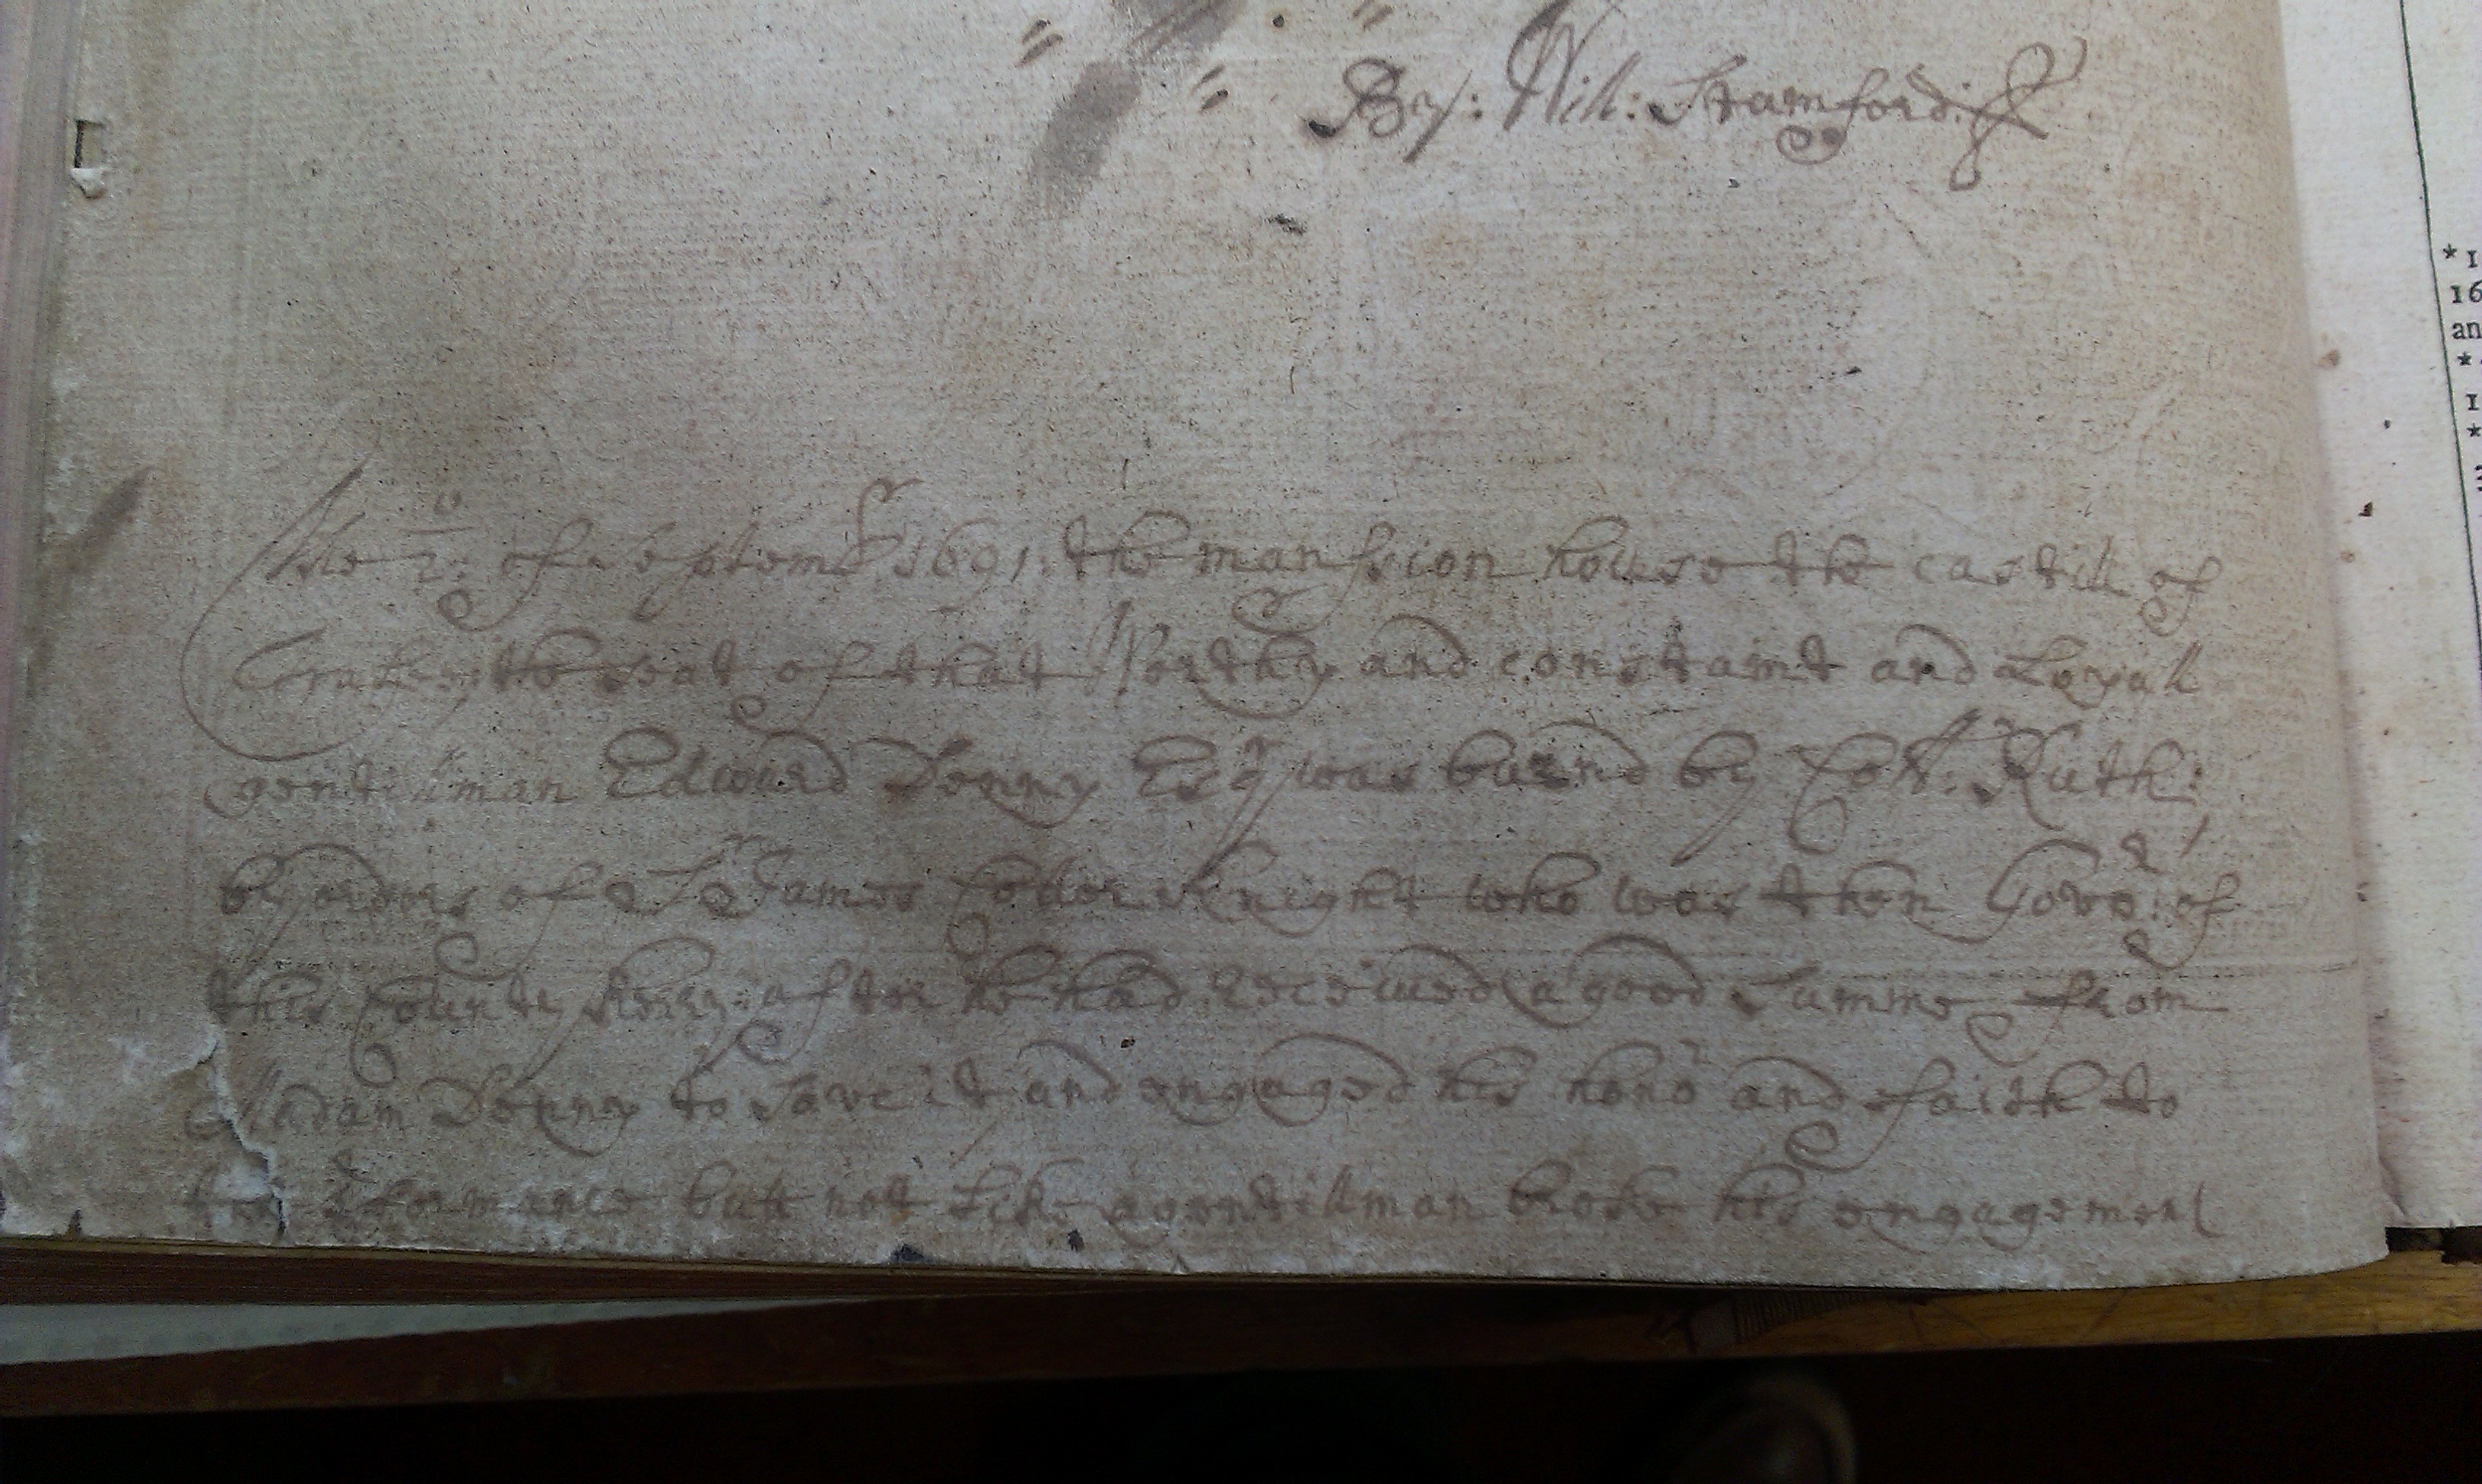 By: Will: Stamford:
The 2: of September 1691: the manssion house the castill of
Tralee; the seat of that Worthy and constamt and Loyall
gentillman Edward Denny Esqr was burnd by Coll: Ruth:
by orders of Sr James Cotter Knight who was then Govr: of
this County Kerry: after he had receiued a good Summe from
Madam Denny to Save it and engaged his honor and faith to
performance butt nott Like a gentillman broke his engagement
* 1
16
an
*
1
*